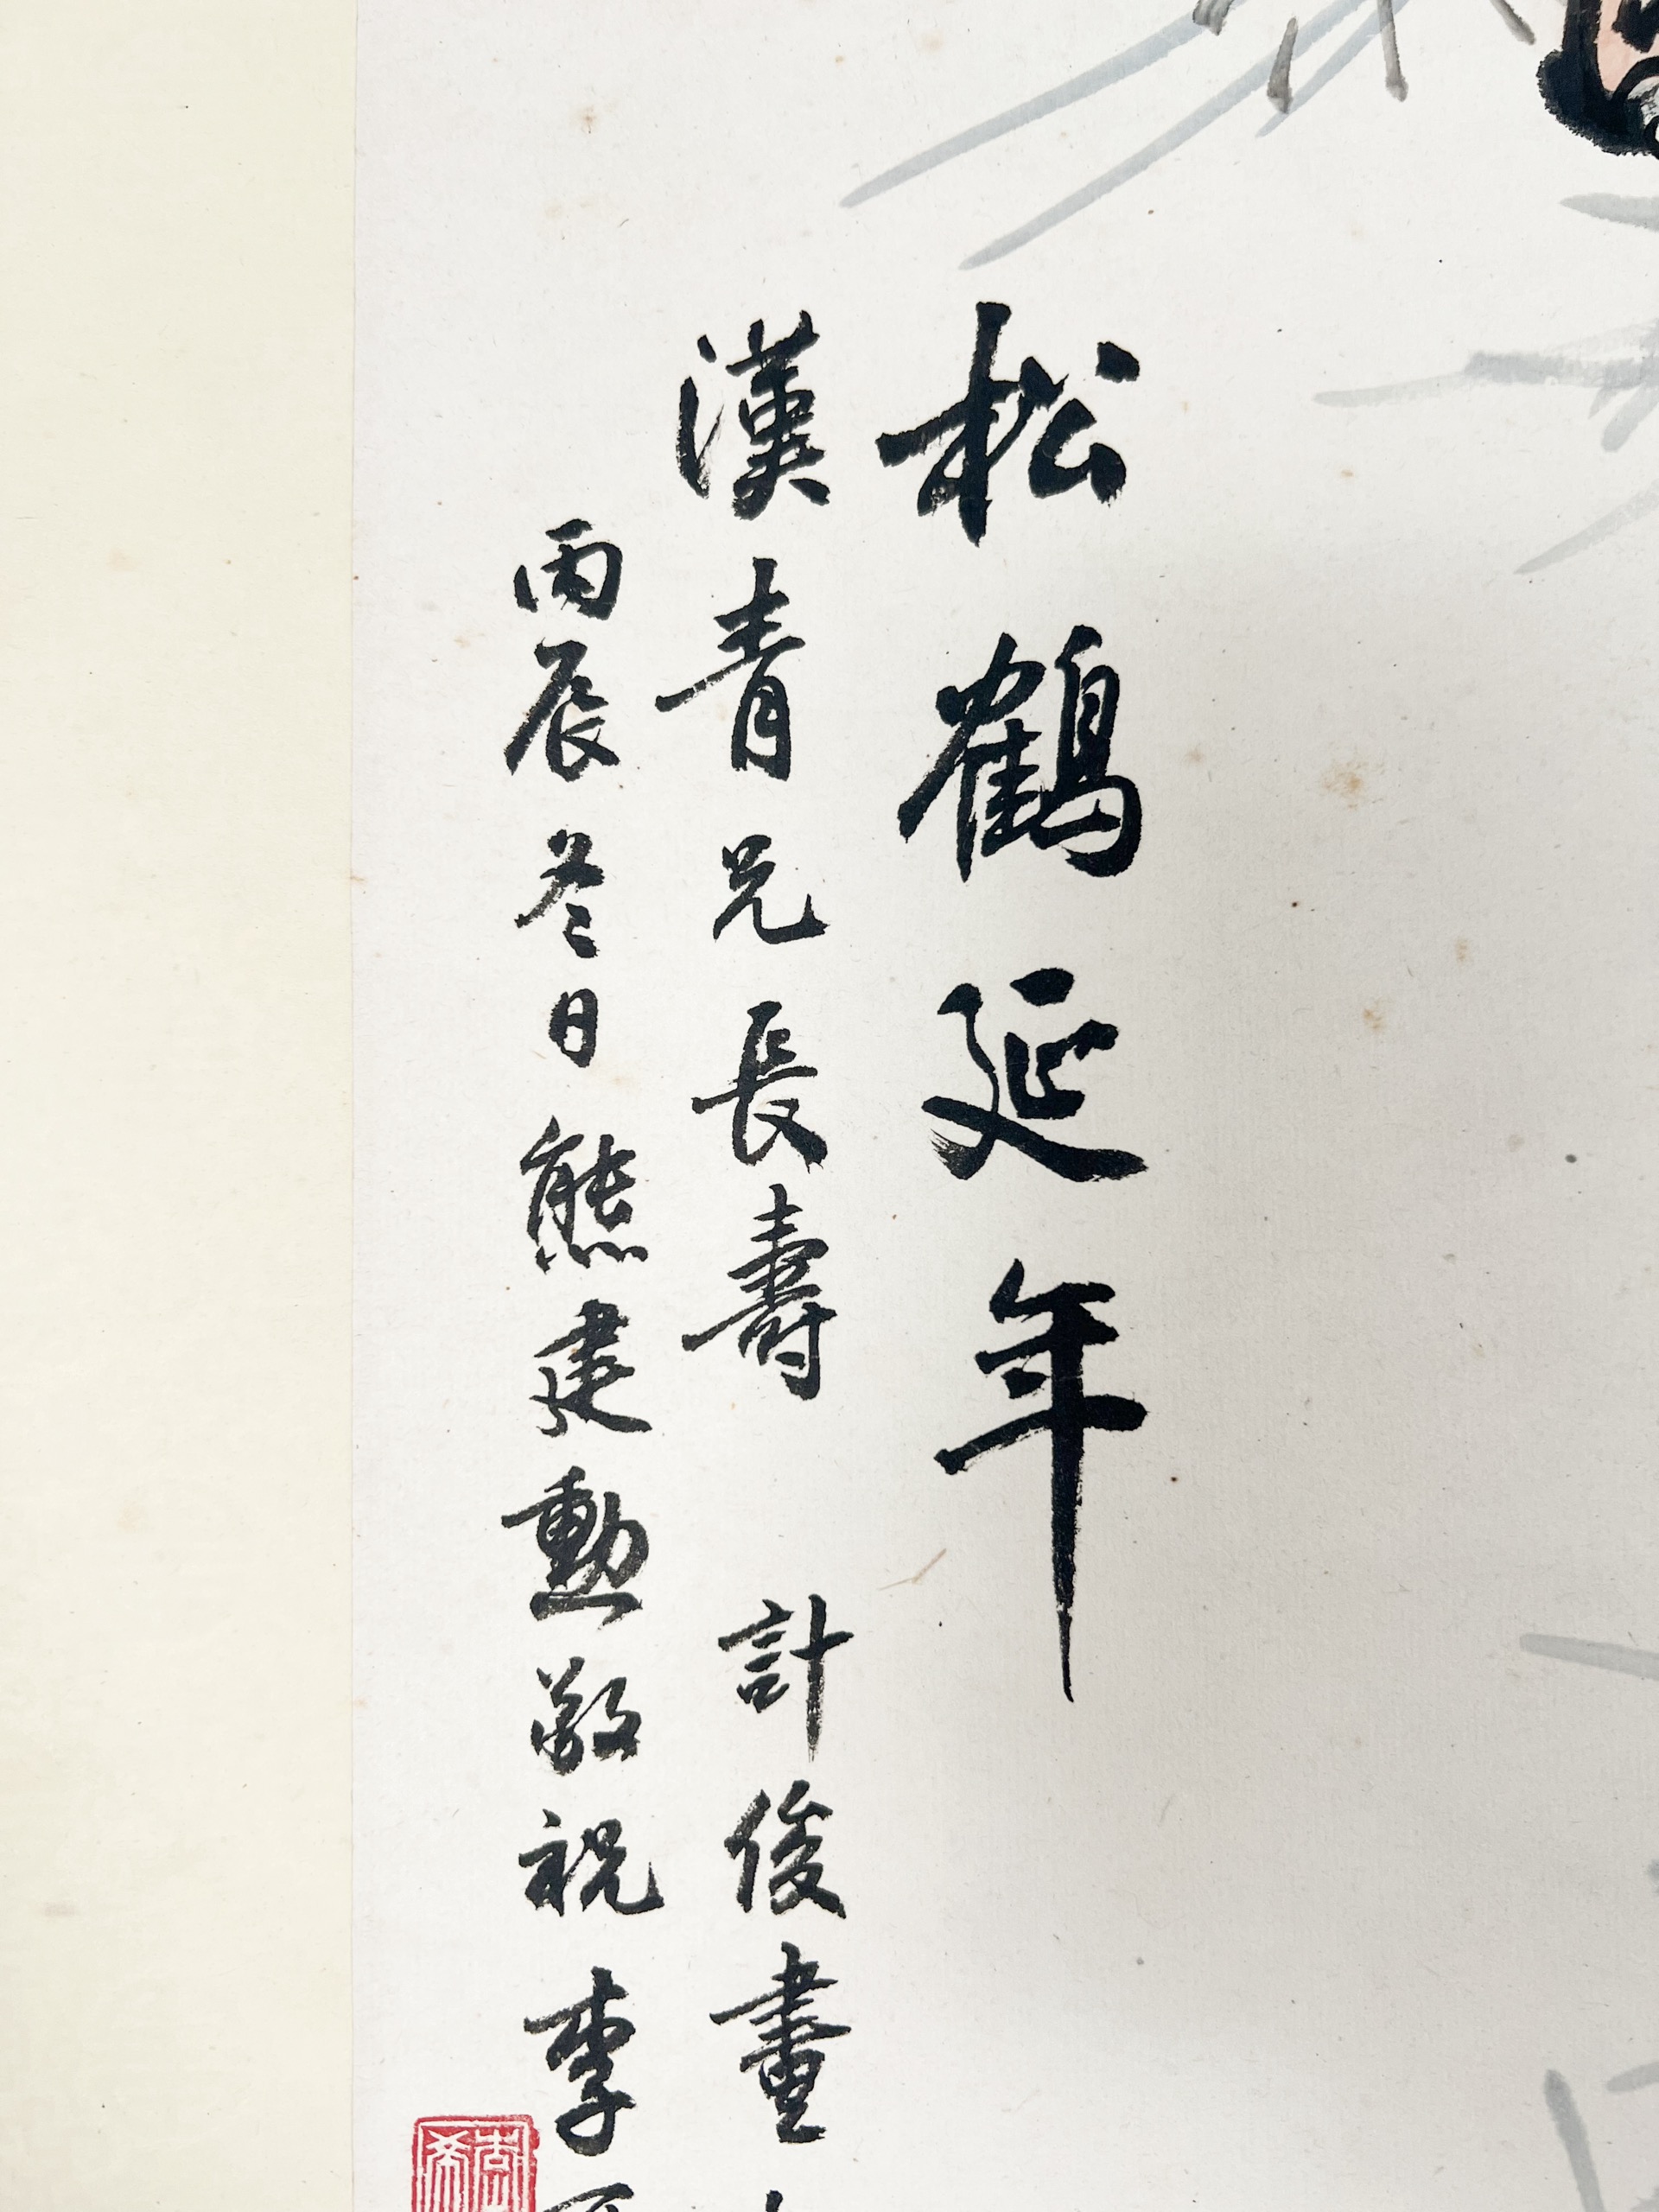 松鶴延年
漢青兄長壽 計俊畫
丙辰冬日熊建勳敬祝李